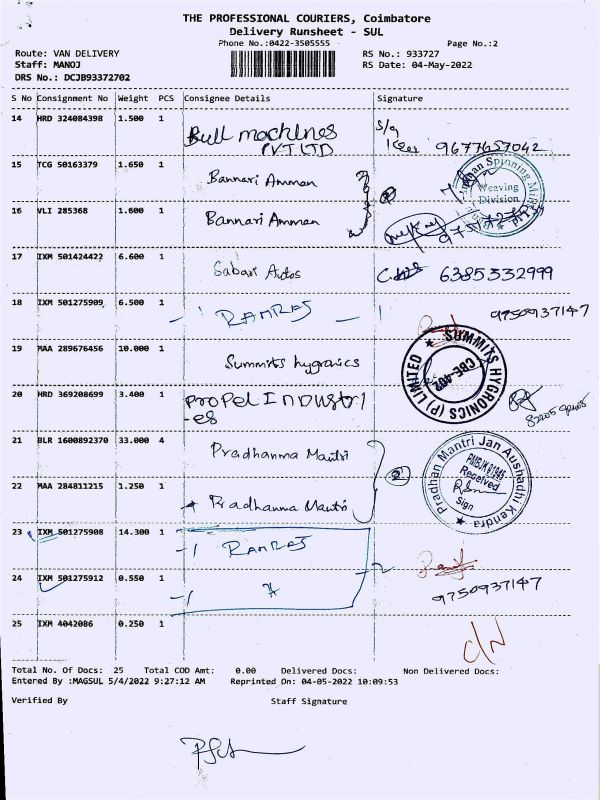 THE PROFESSIONAL COURIERS, Coimbatore
Delivery Runsheet - SUL
Phone No.:0422-3505555
Page No.:2
Route: VAN DELIVERY
RS No.: 933727
Staff: MANOJ
RS Date: 04-May-2022
DRS No.: DCJB93372702
S No Consignment No Weight PCS Consignee Details Signature
14 HRD 324084398 1.500 1 Bull machines PVT LTD 9677657042
15 TCG 50163379 1.650 1 Bannari Amman
Spinning Mills
Weaving Division
16 VLI 285368 1.600 1 Bannari Amman
17 IXM 501424422 6.600 1 Sabari Autos 6385332999
18 IXM 501275909 6.500 1 -1 RAMRAJ -1 9750937147
19 MAA 289676456 10.000 1 Summits hygronics
SUMMITS HYGRONICS (P) LIMITED
CBE-402
20 HRD 369208699 3.400 1 PROPEL INDUSTRI
-es
21 BLR 1600892370 33.000 4 Pradhanma Mantri
2
Pradhan Mantri Jan Aushadhi Kendra
Received
Sign
22 MAA 284811215 1.250 1 Pradhanma Mantri
23 IXM 501275908 14.300 1 -1 RAMRAJ
-2
24 IXM 501275912 0.550 1 -1 9750937147
25 IXM 4042086 0.250 1 C/N
Total No. Of Docs: 25 Total COD Amt: 0.00 Delivered Docs: Non Delivered Docs:
Entered By :MAGSUL 5/4/2022 9:27:12 AM Reprinted On: 04-05-2022 10:09:53
Verified By Staff Signature